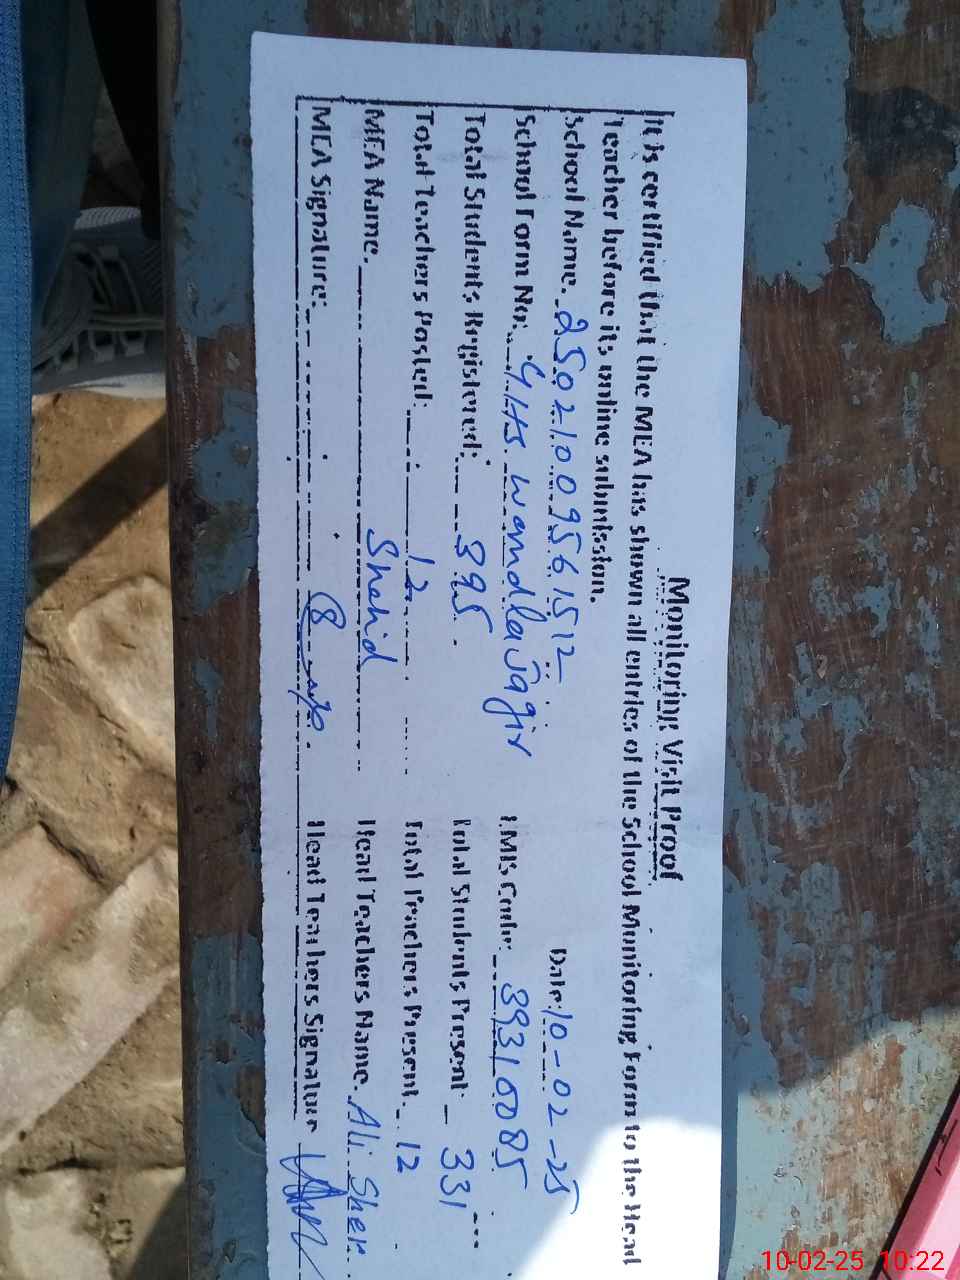 Monitoring Visit Proof
It is certified that the MEA has shown all entries of the School Monitoring Form to the Head
Teacher before its online submission.
School Name. 25021009561512 Date: 10-02-25
School Form No: GHS wandla Jagir EMIS Code: 39310085
Total Students Registered: 395 Total Students Present 331
Total Teachers Posted: 12 Total Teachers Present. 12
MEA Name. Shahid Head Teachers Name. Ali Sher
MEA Signature: Head Teachers Signature
10-02-25 10:22